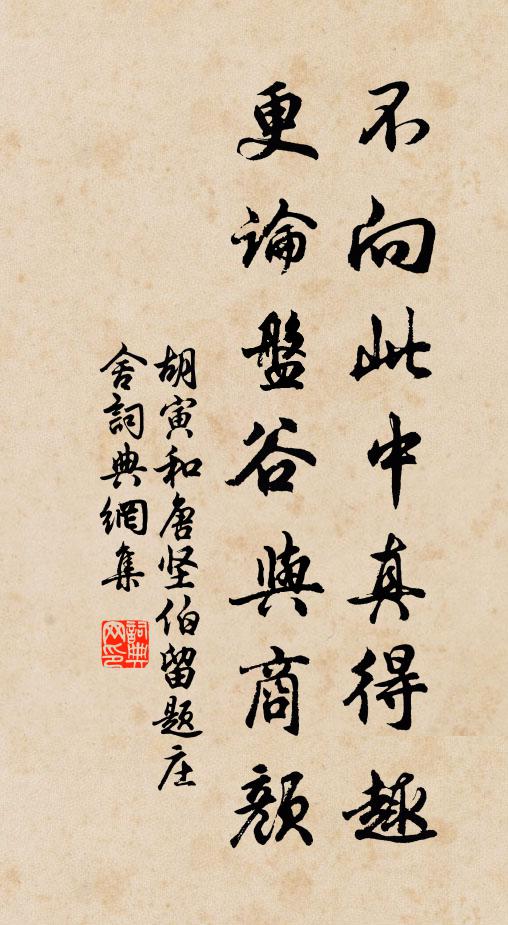 不向此中真得趣
更論盤谷與商顏
胡寅和唐坚伯留题庄
舍詞典網集
詞典
网印